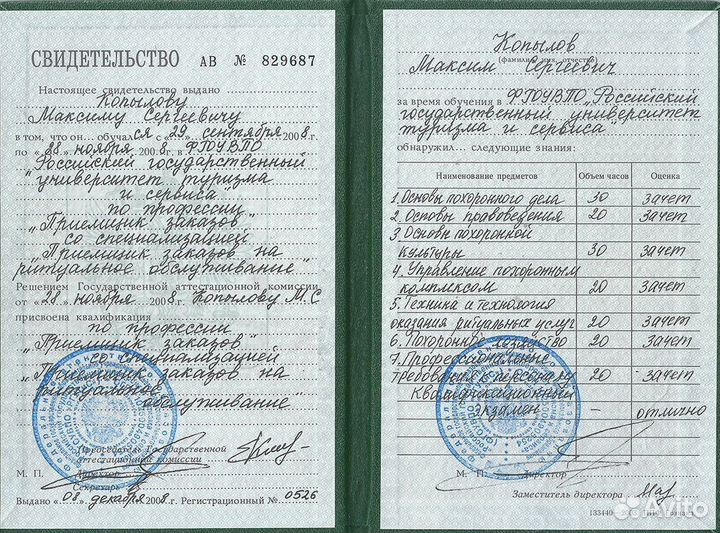 СВИДЕТЕЛЬСТВО АВ № 829687
Настоящее свидетельство выдано
Копылову
Максиму Сергеевичу
в том, что он.. обучался с «29» сентября 2008г.
по «28» ноября 2008г. в ФГОУВПО
"Российский государственный
университет туризма
и сервиса
по профессии
"Приемщик заказов"
со специализацией
"Приемщик заказов на
ритуальное обслуживание"
Решением Государственной аттестационной комиссии
от «28» ноября 2008г. Копылову М.С
присвоена квалификация
по профессии
"Приемщик заказов"
со специализацией
"Приемщик заказов на
ритуальное
обслуживание"
Председатель Государственной
аттестационной комиссии
М. П. Директор
Секретарь
Выдано «08» декабря 2008г. Регистрационный № 0526
Копылов
(фамилия, имя, отчество)
Максим Сергеевич
за время обучения в ФГОУВПО "Российский
государственный университет
туризма и сервиса"
обнаружил... следующие знания:
Наименование предметов Объем часов Оценка
1. Основы похоронного дела 30 зачет
2. Основы правоведения 20 зачет
3. Основы похоронной
культуры 30 зачет
4. Управление похоронным
комплексом 20 зачет
5. Техника и технология
оказания ритуальных услуг 20 зачет
6. Похоронное хозяйство 20 зачет
7. Профессиональные
требования к персоналу 20 зачет
Квалификационный
экзамен – отлично
М. П. Директор
Заместитель директора
Avito